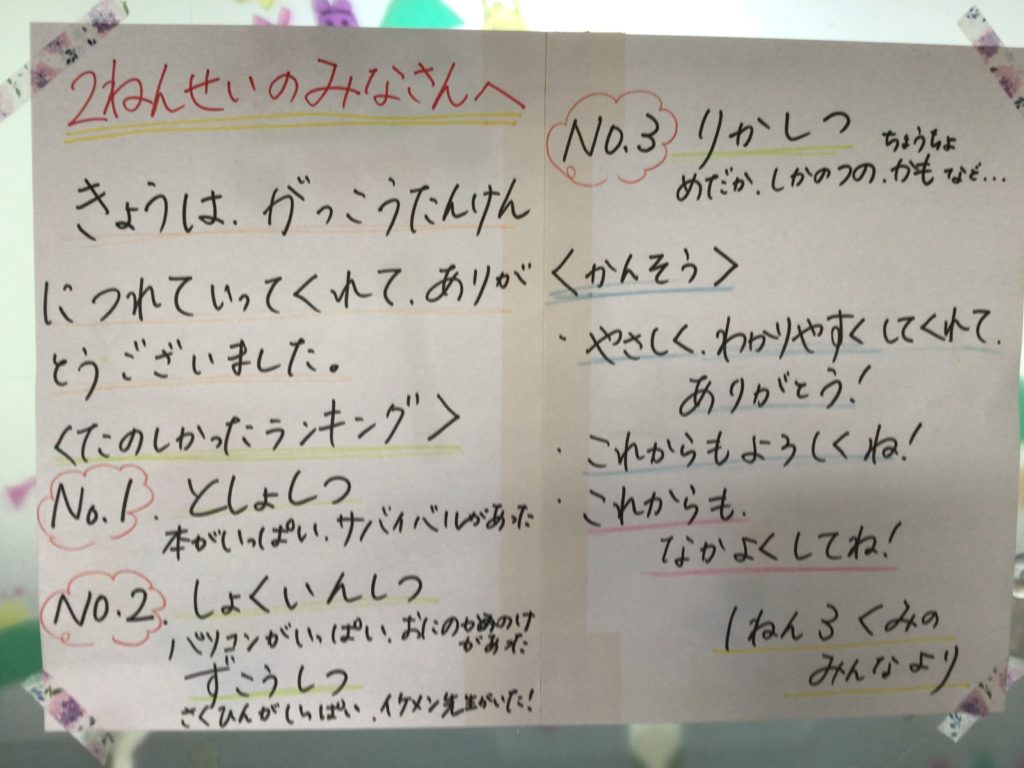 2ねんせいのみなさんへ
きょうは、がっこうたんけん
につれていってくれて、ありが
とうございました。
<たのしかったランキング>
No.1. としょしつ
本がいっぱい、サバイバルがあった
NO.2. しょくいんしつ
パソコンがいっぱい、おにのかみのけ
があった
ずこうしつ
さくひんがいっぱい、イケメン先生がいた!
NO.3 りかしつ
ちょうちょ
めだか、しかのつの、かも など...
<かんそう>
・やさしく、わかりやすくしてくれて、
ありがとう!
・これからもよろしくね!
・これからも、
なかよくしてね!
1ねん3くみの
みんなより